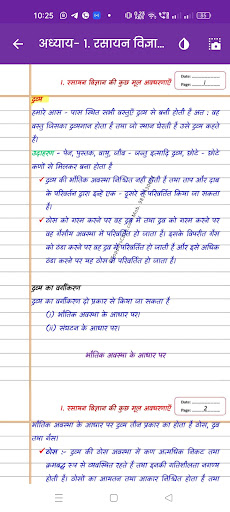 10:25
55
अध्याय- 1. रसायन विज्ञा...
1. रसायन विज्ञान की कुछ मूल अवधारणाएँ
Date:
Page: 1
द्रव्य
हमारे आस - पास स्थित सभी वस्तुएँ द्रव्य से बनी होती है अत : वह
वस्तु जिसका द्रव्यमान होता है तथा जो स्थान घेरती है उसे द्रव्य कहते
हैं।
उदाहरण - पेन, पुस्तक, वायु, जीव - जन्तु इत्यादि द्रव्य, छोटे - छोटे
कणों से मिलकर बना होता है
✓ द्रव्य की भौतिक अवस्था निश्चित नहीं होती है तथा ताप और दाब
के परिवर्तन द्वारा इन्हें एक - दूसरे में परिवर्तित किया जा सकता
है।
✓ ठोस को गरम करने पर वह द्रव में तथा द्रव को गरम करने पर
वह गैसीय अवस्था में परिवर्तित हो जाता है। इसके विपरीत गैस
को ठंडा करने पर वह द्रव में परिवर्तित हो जाती है और इसे अधिक
ठंडा करने पर यह ठोस में परिवर्तित हो जाती है।
द्रव्य का वर्गीकरण
द्रव्य का वर्गीकरण दो प्रकार से किया जा सकता है
(i) भौतिक अवस्था के आधार पर।
(ii) संघटन के आधार पर।
भौतिक अवस्था के आधार पर
1. रसायन विज्ञान की कुछ मूल अवधारणाएँ
Date:
Page: 2
भौतिक अवस्था के आधार पर द्रव्य तीन प्रकार का होता है ठोस, द्रव
तथा गैस।
✓ ठोस :- द्रव्य की ठोस अवस्था में कण अत्यधिक निकट तथा
क्रमबद्ध रूप से व्यवस्थित रहते हैं तथा इनकी गतिशीलता नगण्य
होती है। ठोसों का आयतन तथा आकार निश्चित होता है तथा